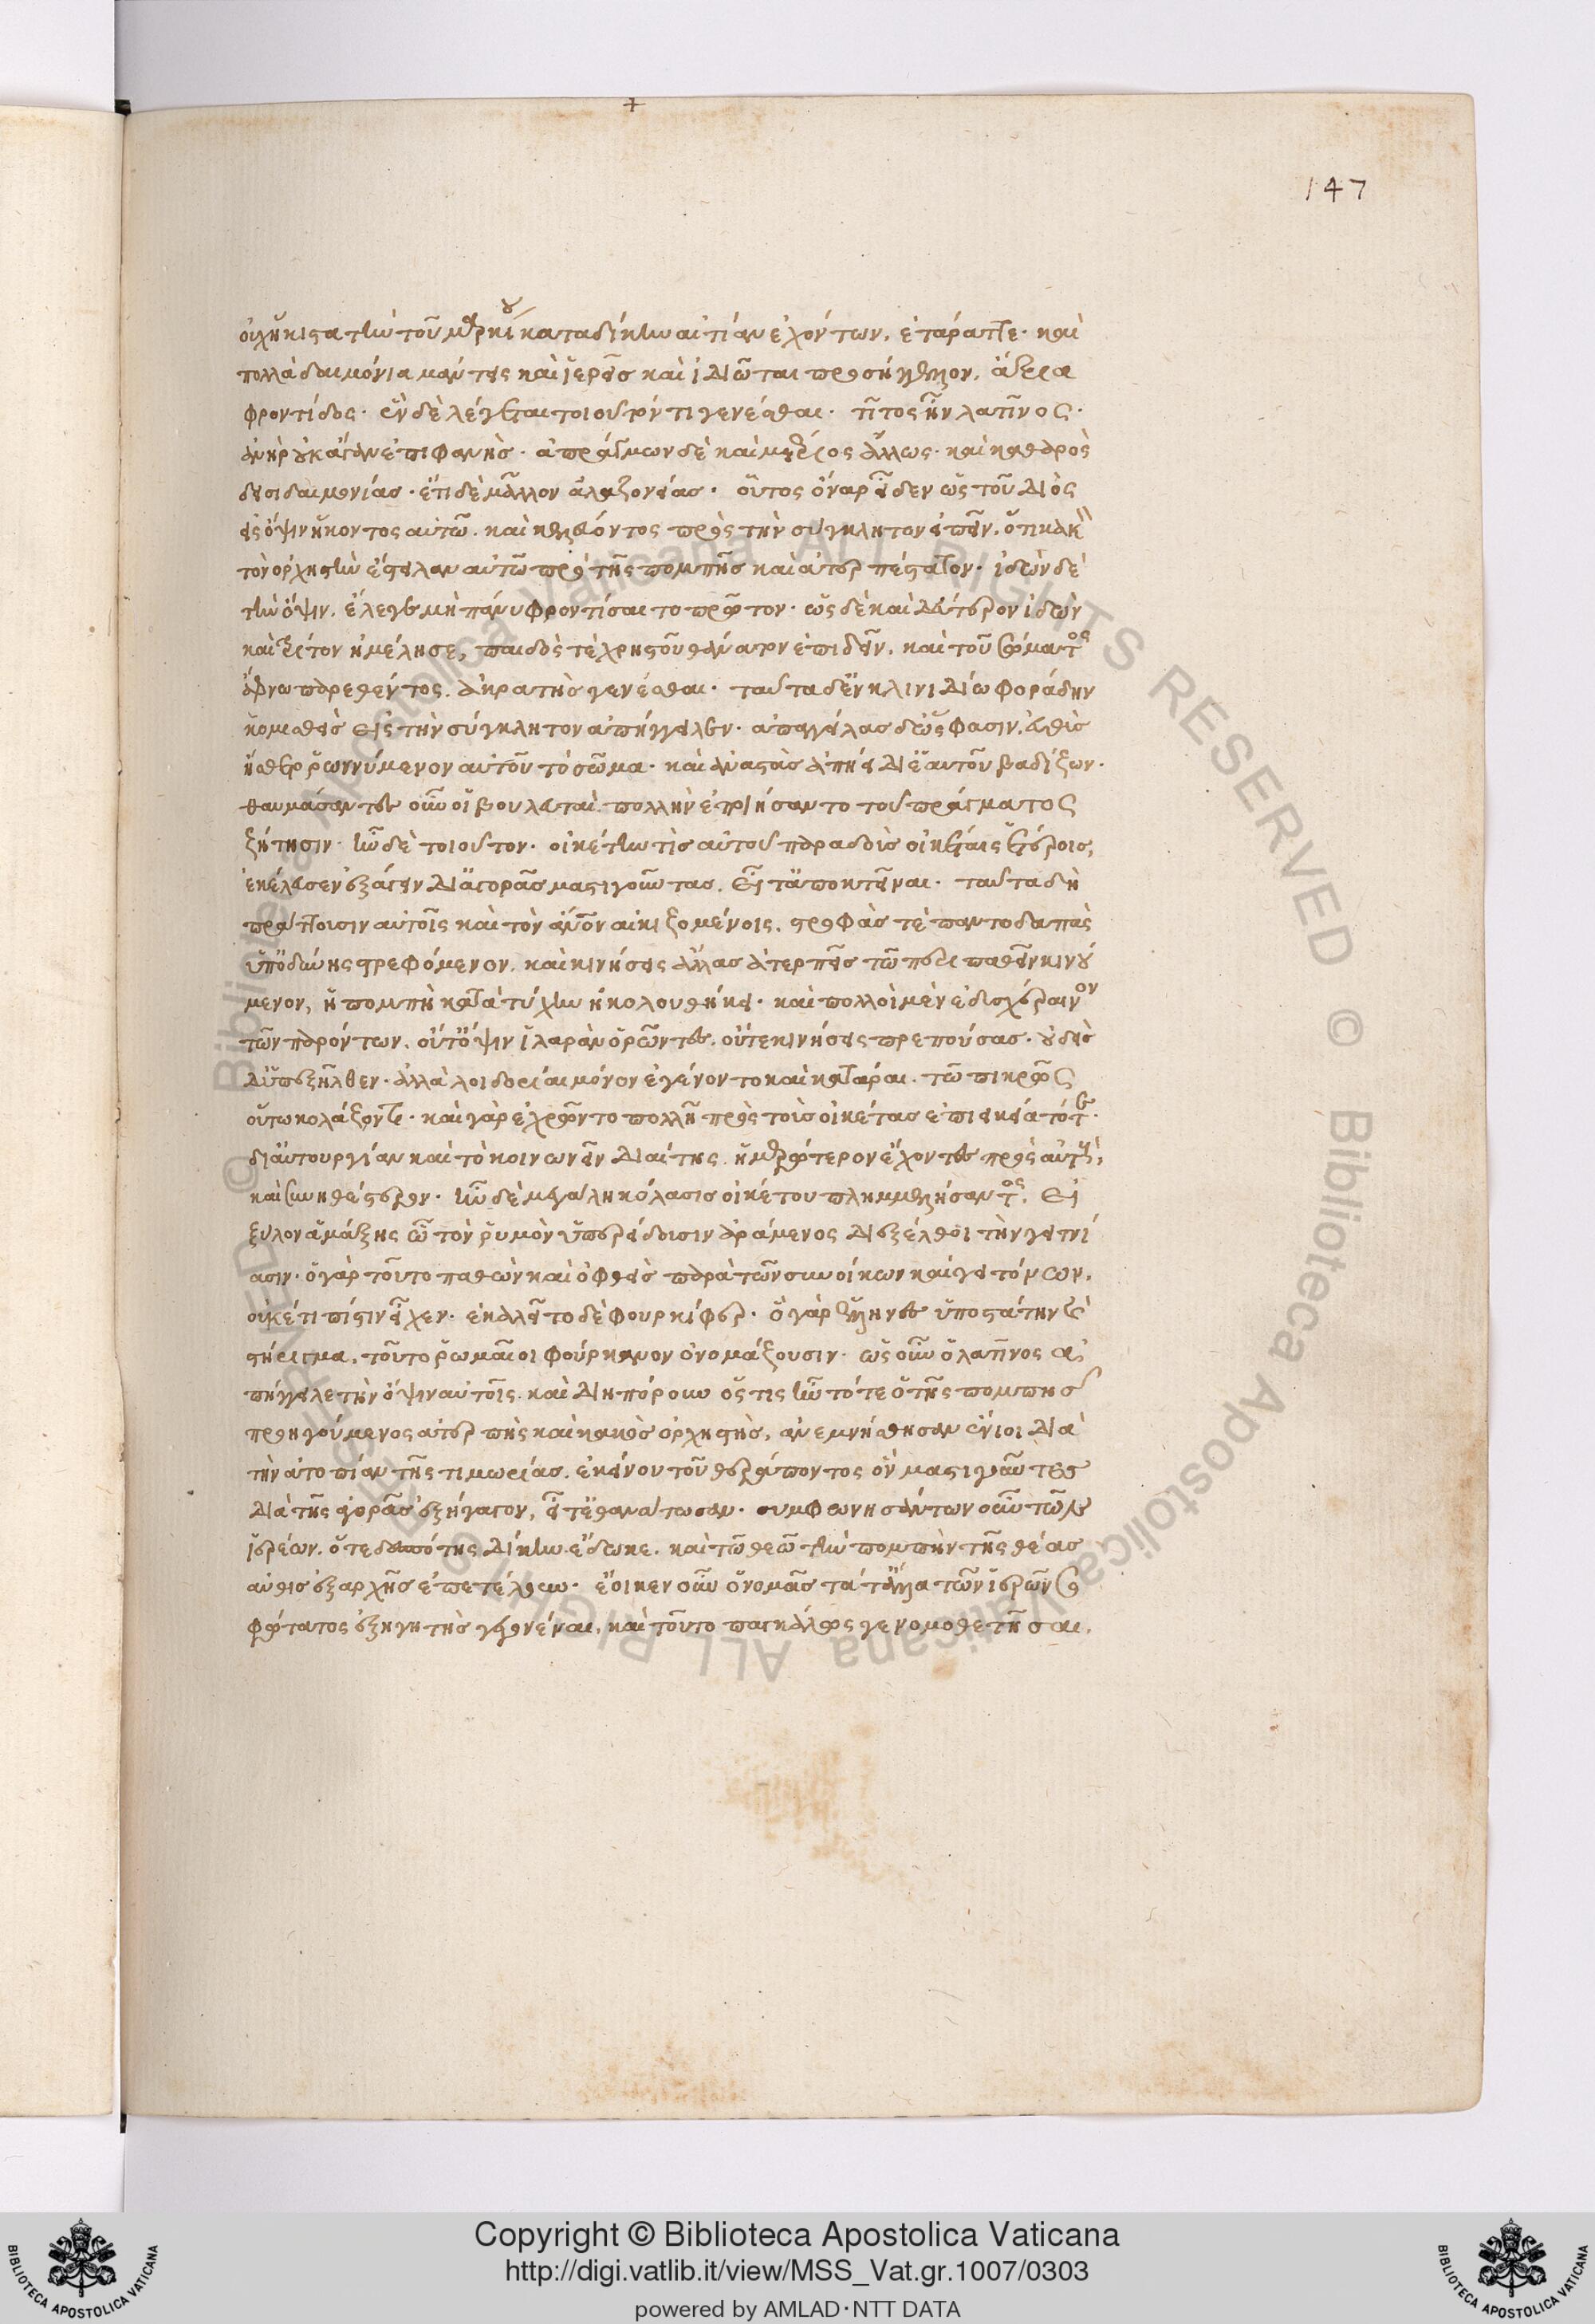 147
οὐχ ἥκιστα τὴν τοῦ μαρκίου καταδίκην αἰτίαν ἐχόντων. ἐτάραττε· καὶ
πολλὰ δαιμόνια μάντεις καὶ ἱερεῖς καὶ ἰδιῶται προσήγγελλον. ἄξια
φροντίδος· ἓν δὲ λέγεται τοιοῦτόν τι γενέσθαι· τίτος ἦν λατῖνος·
ἀνὴρ οὐκ ἄγαν ἐπιφανής· ἀπράγμων δὲ καὶ μέτριος ἄλλως· καὶ καθαρὸς
δεισιδαιμονίας· ἔτι δὲ μᾶλλον ἀλαζονείας· οὗτος ὄναρ εἶδεν ὡς τοῦ Διὸς
εἰς ὄψιν ἥκοντος αὐτῷ. καὶ κελεύοντος πρὸς τὴν σύγκλητον εἰπεῖν. ὅτι κακὸν
τὸν ὀρχηστὴν ἔστειλαν αὐτῷ πρὸ τῆς πομπῆς καὶ ἀτερπέστατον· ἰδὼν δὲ
τὴν ὄψιν. ἔλεγε μὴ πάνυ φροντίσαι τὸ πρῶτον· ὡς δὲ καὶ δεύτερον ἰδὼν
καὶ τρίτον ἠμέλησε, παιδός τε χρηστοῦ θάνατον ἐπιδεῖν. καὶ τοῦ σώματος
ἄφνω παρεθέντος. ἀκρατὴς γενέσθαι· ταῦτα δ' ἐν κλινιδίῳ φοράδην
κομισθεὶς εἰς τὴν σύγκλητον ἀπήγγειλεν· ἀπαγγείλας δ' ὥς φασιν. εὐθὺς
ᾔσθετο ῥωννύμενον αὐτοῦ τὸ σῶμα· καὶ ἀναστὰς ἀπῄει δι' ἑαυτοῦ βαδίζων·
θαυμάσαντες οὖν οἱ βουλευταί. πολλὴν ἐποιήσαντο τοῦ πράγματος
ζήτησιν· ἦν δὲ τοιοῦτον· οἰκέτην τὶς αὐτοῦ παραδοὺς οἰκέταις ἑτέροις,
ἐκέλευσεν ἐξάγειν δι' ἀγορᾶς μαστιγοῦντας. εἶτ' ἀποκτεῖναι· ταῦτα δὴ
πράττουσιν αὐτοῖς καὶ τὸν ἄνθρωπον αἰκιζομένοις. στροφάς τε παντοδαπὰς
ὑπ' ὀδύνης στρεφόμενον. καὶ κινήσεις ἄλλας ἀτερπεῖς τῷ περιπαθεῖν κινού
μενον, ἡ πομπὴ κατὰ τύχην ἠκολουθήκει· καὶ πολλοὶ μὲν ἐδυσχέραινον
τῶν παρόντων. οὔτ' ὄψιν ἱλαρὰν ὁρῶντες. οὔτε κινήσεις πρεπούσας· οὐδεὶς
δ' ὑπεξῆλθεν· ἀλλὰ λοιδορίαι μόνον ἐγένοντο καὶ κατάραι. τῷ πικρῶς
οὕτω κολάζοντι· καὶ γὰρ ἐχρῶντο πολλῇ πρὸς τοὺς οἰκέτας ἐπιεικείᾳ τότε·
δι' αὐτουργίαν καὶ τὸ κοινωνεῖν διαίτης. ἡμερώτερον ἔχοντες πρὸς αὐτούς,
καὶ συνηθέστερον· ἦν δὲ μεγάλη κόλασις οἰκέτου πλημμελήσαντος. εἰ
ξύλον ἁμάξης ᾧ τὸν ῥυμὸν ὑπερείδουσιν ἀράμενος διεξέλθοι τὴν γειτνί
ασιν· ὁ γὰρ τοῦτο παθὼν καὶ ὀφθεὶς παρὰ τῶν συνοίκων καὶ γειτόνων.
οὐκέτι πίστιν εἶχεν· ἐκαλεῖτο δὲ φουρκίφερ· ὃ γὰρ ἕλληνες ὑποστάτην καὶ
στήριγμα. τοῦτο ῥωμαῖοι φούρκανον ὀνομάζουσιν· ὡς οὖν ὁ λατῖνος ἀ
πήγγειλε τὴν ὄψιν αὐτοῖς. καὶ διηπόρουν ὅς τις ἦν τότε ὁ τῆς πομπῆς
προηγούμενος ἀτερπὴς καὶ κακὸς ὀρχηστής, ἀνεμνήσθησαν ἔνιοι διὰ
τὴν ἀτοπίαν τῆς τιμωρίας. ἐκείνου τοῦ θεράποντος ὃν μαστιγοῦντες
διὰ τῆς ἀγορᾶς ἐξήγαγον, εἶτ' ἐθανάτωσαν· συμφωνησάντων οὖν τῶν
ἱερέων. ὅ τε δεσπότης δίκην ἔδωκε. καὶ τῷ θεῷ τὴν πομπὴν τῆς θέας
αὖθις ἐξ ἀρχῆς ἐπετέλουν· ἔοικεν οὖν ὁ νομᾶς τά τ' ἄλλα τῶν ἱερῶν σο
φώτατος ἐξηγητὴς γεγονέναι. καὶ τοῦτο παγκάλως γε νομοθετῆσαι.
Copyright © Biblioteca Apostolica Vaticana
http://digi.vatlib.it/view/MSS_Vat.gr.1007/0303
powered by AMLAD·NTT DATA